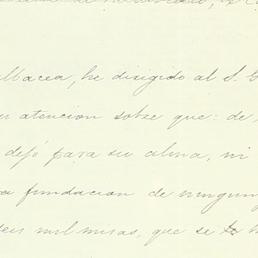 albacea, he dirigido al S. G
atencion sobre que: de
dejó para su alma, ni
fundacion de ningun
seis mil misas, que se